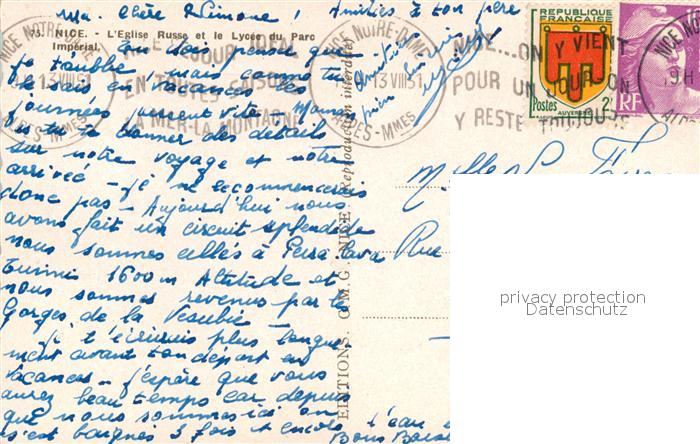 Ma Chère Simone Amitiés à ton père
75. NICE. - L'Eglise Russe et le Lycée du Parc
Impérial.
REPUBLIQUE
FRANÇAISE
Postes
2F
AUVERGNE
RF
NICE NOTRE-DAME
13 VIII 51
ALPES-MMES
NICE...ON Y VIENT
POUR UN JOUR - ON
Y RESTE TOUJOURS
EN TOUTES SAISONS
LA MER-LA MONTAGNE
Tu dois penser que
je t'oublie, mais comme tu
le sais en vacances les
journées passent vite. Maman
a dû te donner des détails
sur notre voyage et notre
arrivée - je ne recommencerais
donc pas - Aujourd'hui nous
avons fait un circuit splendide
nous sommes allés à Peira Cava
Turini 1600 m Altitude et
nous sommes revenus par le
Gorges de la Vésubie
Je t'écrirais plus longue
ment avant ton départ en
vacances - j'espère que vous
aurez beau temps car depuis
que nous sommes ici on
s'est baignés 3 fois et encore
l'eau
Bons Baisers
EDITIONS. O.M.G. - NICE (Reproduction interdite)
Melle
Rue
privacy protection
Datenschutz